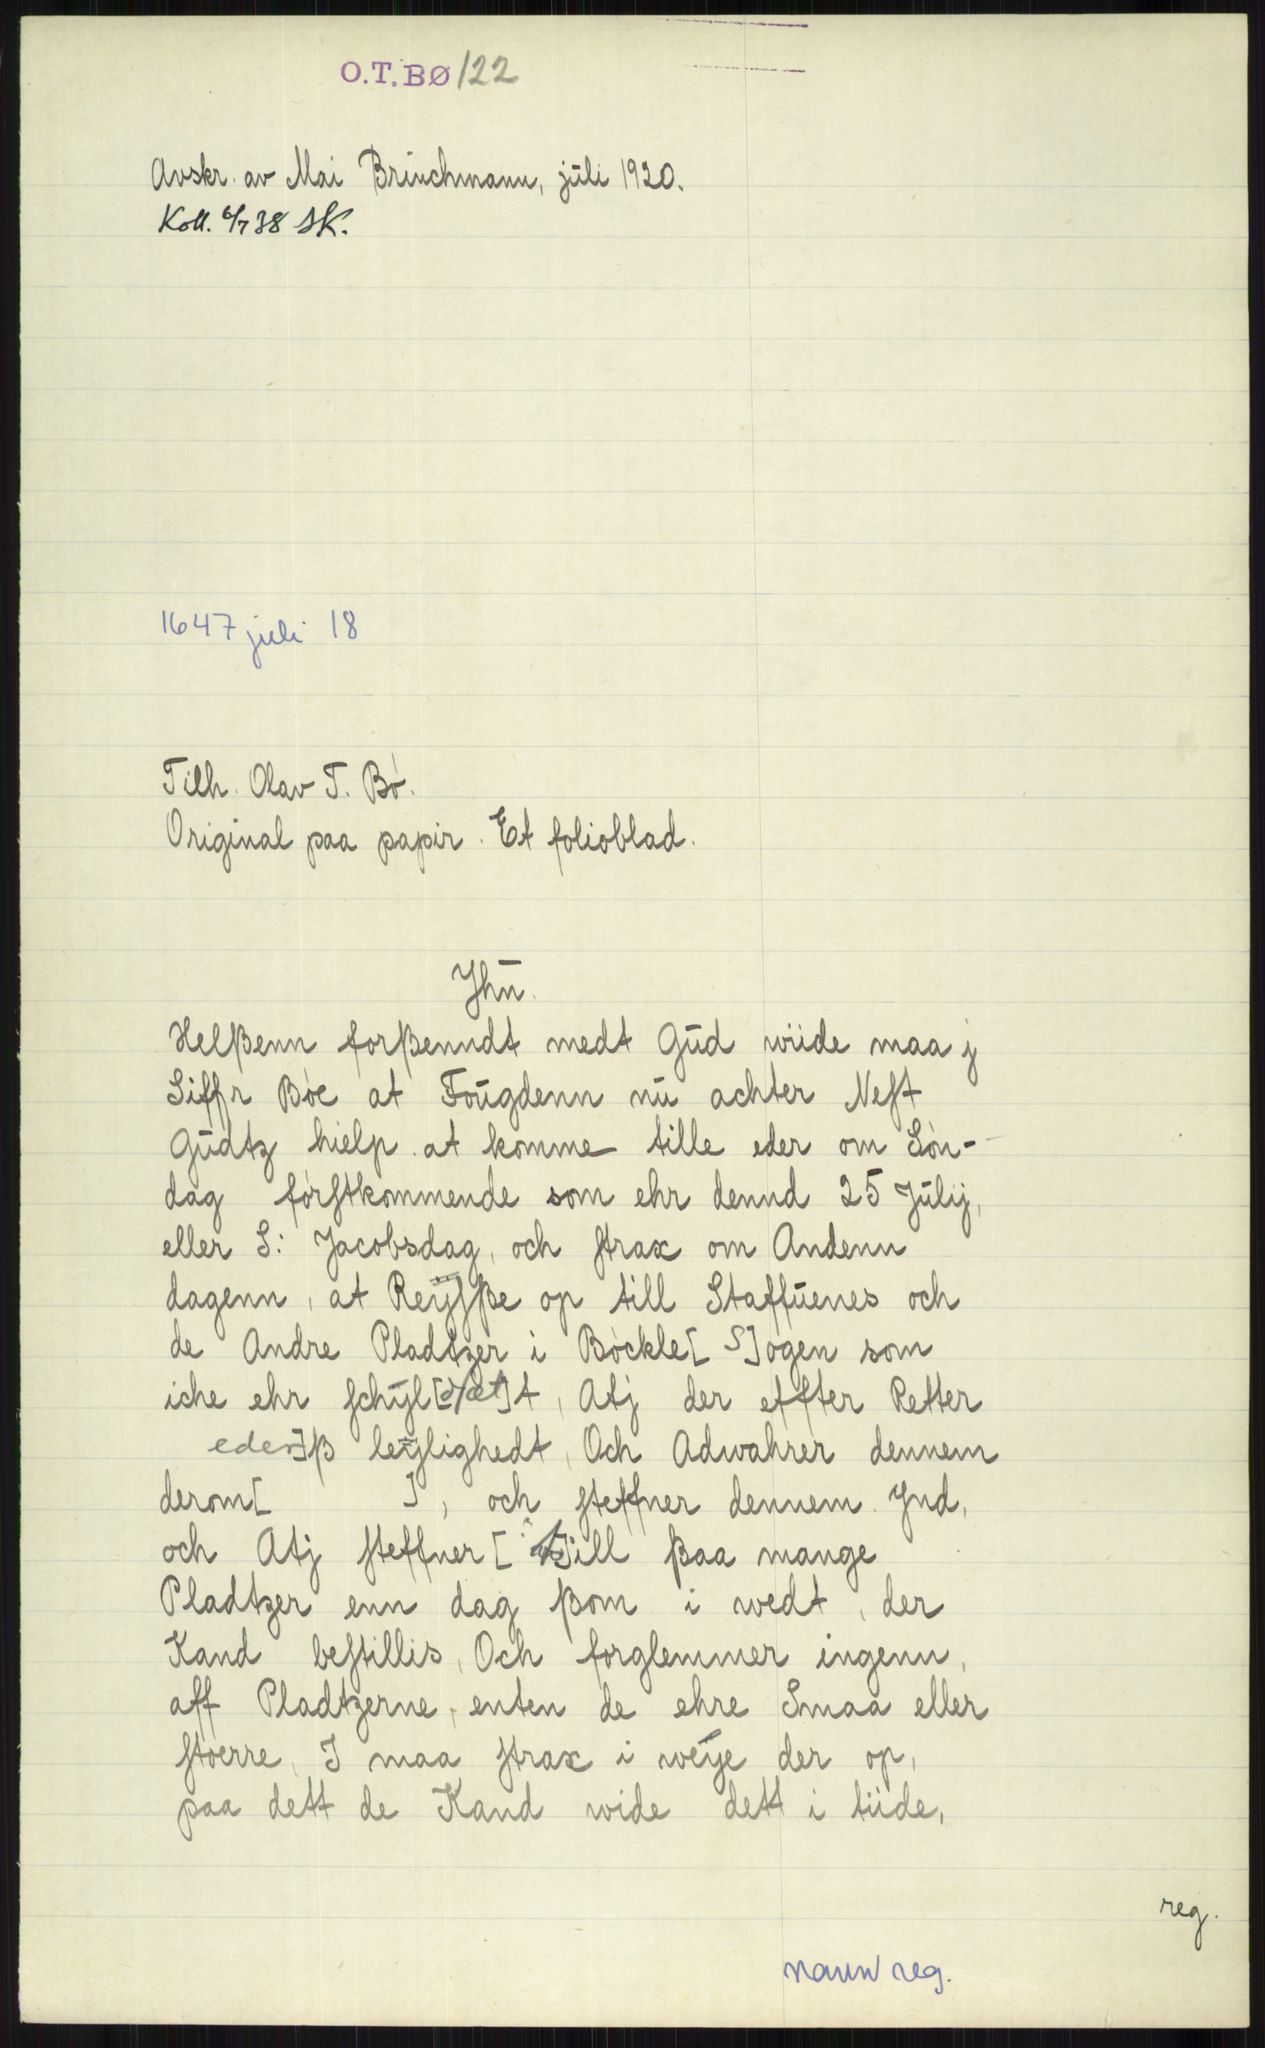 O.T.BØ/22
Avskr. av Mai Brinchmann, juli 1920.
Koll. 6/7 38 SK.
1647 juli 18
Tilh. Olav T. Bø.
Original paa papir. Et folioblad.
Jhū.
Helßenn forßenndt medt Gūd wiide maa j
Siffr Bøe at Foūgdenn nū achter Nest
Gūdtz hielp at komme tille eder om Søn-
dag førstkommende som ehr dennd 25 Jūlij,
eller S: Jacobsdag, och strax om Andenn
dagenn, at Reysße op till Staffūenes och
de Andre Pladtzer i Bøckle[ S]ogen som
iche ehr schyl[dset]t, Atj der effter Retter
eder]ß leylighedt, Och Adwahrer dennem
derom[ ], och steffner dennem Jnd,
och Atj steffner [ t]ill ßaa mange
Pladtzer enn dag ßom i wedt, der
Kand bestillis, Och forglemmer ingenn,
aff Pladtzerne, enten de ehre Smaa eller
støerre, I maa strax i weye der op,
paa dett de Kand wide dett i tiide,
reg.
navnreg.